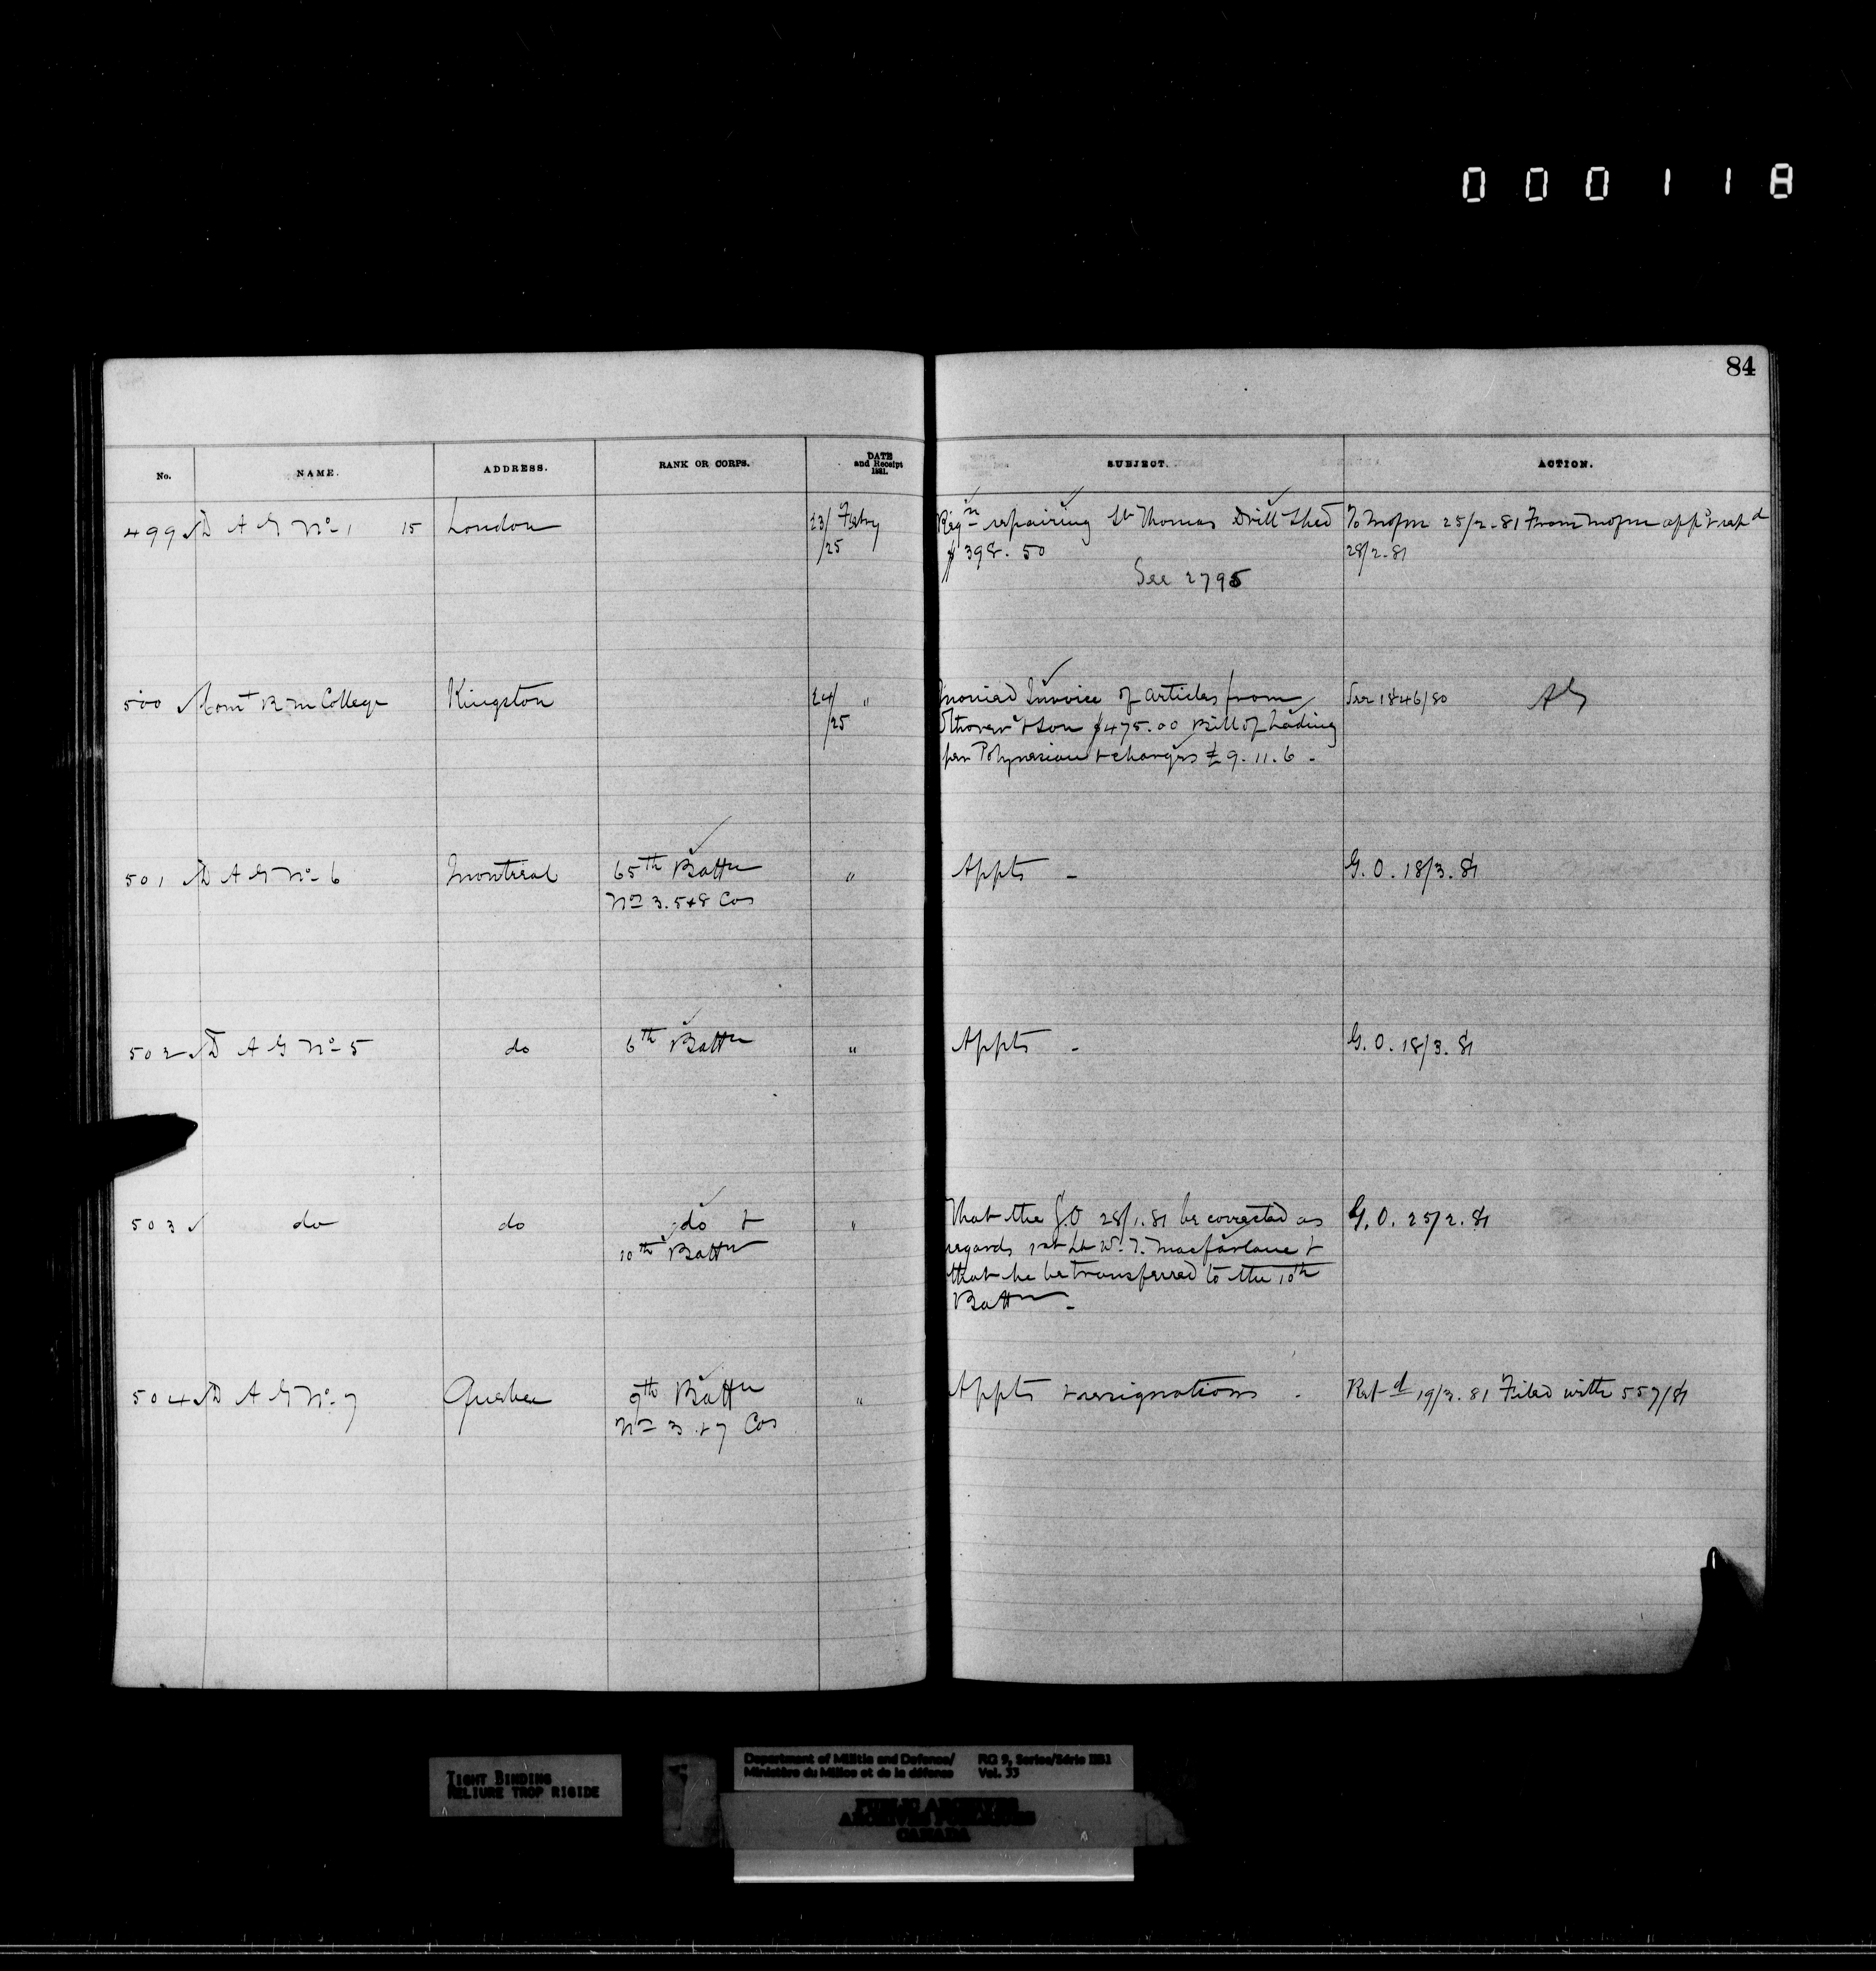 000118
84
No. NAME. ADDRESS. RANK OR CORPS. DATE and Receipt 1881. SUBJECT. ACTION.
499 D A G No 1 15 London 23/25 Feby Reqn repairing St Thomas Drill Shed To 25/2-81 From
$398.50 28/2.81
See 2795
500 Comt R M College Kingston 24/25 " Invoice of articles from See 1846/80 AG
& Son $475.00 Bill of Lading
per Polynesian & charges £9.11.6.
501 D A G No 6 Montreal 65th Battn " Appts - G.O. 18/3.81
No 3. 5 & 8 Cos
502 D A G No 5 do 6th Battn " Appts - G.O. 18/3.81
503 do do do & " That the G.O 28/1.81 be corrected as G.O. 25/2.81
10th Battn regards 1st Lt W. T. Macfarlane &
that he be transferred to the 10th
Battn -
504 D A G No 7 Quebec 9th Battn " Appts & resignations - Retd 19/3.81 Filed with 557/81
No 3 & 7 Cos
TIGHT BINDING
RELIURE TROP RIGIDE
Department of Militia and Defence/ RG 9, Series/Série IIB1
Ministère du Milice et de la défense Vol. 33
PUBLIC ARCHIVES
ARCHIVES PUBLIQUES
CANADA